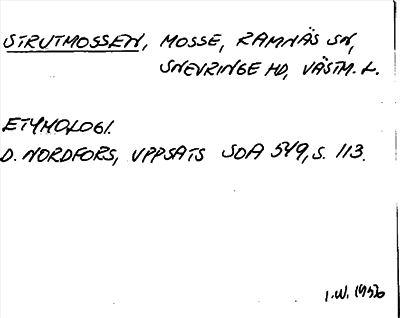 STRUTMOSSEN, MOSSE, RAMNÄS SN,
SNEVRINGE HD, VÄSTM. L.
ETYMOLOGI.
D. NORDFORS, UPPSATS SOA 549, S. 113.
I.W. 1950